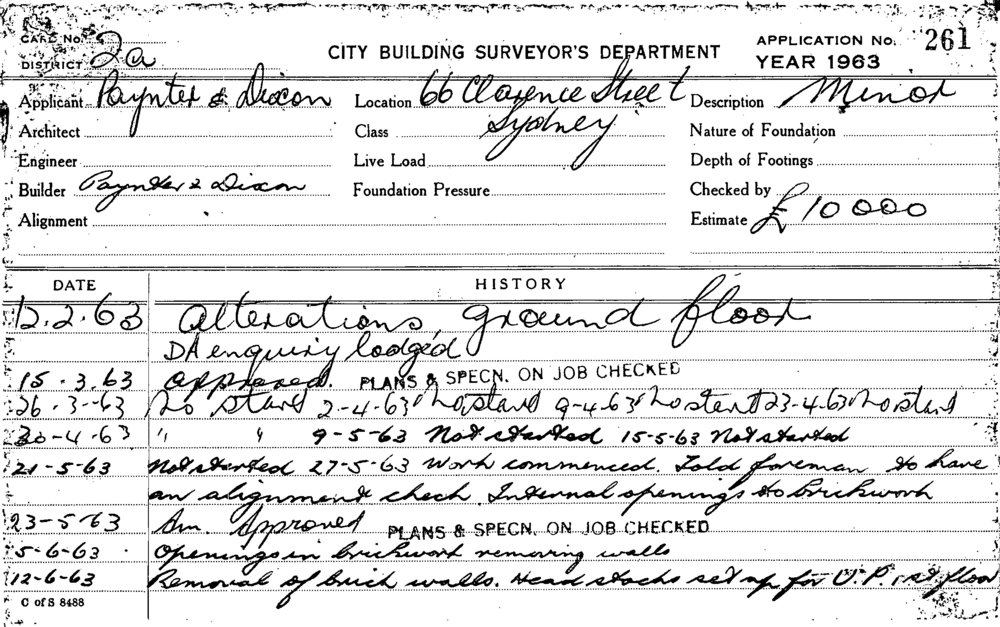 CARD No.
CITY BUILDING SURVEYOR'S DEPARTMENT
APPLICATION No. 261
DISTRICT 2a
YEAR 1963
Applicant Paynter & Dixon
Location 66 Clarence Street
Sydney
Description Minor
Architect
Class
Nature of Foundation
Engineer
Live Load
Depth of Footings
Builder Paynter & Dixon
Foundation Pressure
Checked by
Alignment
Estimate £10000
DATE HISTORY
12.2.63 Alterations, ground floor
DA enquiry lodged
15.3.63 Approved. PLANS & SPECN. ON JOB CHECKED
26-3-63 No start 2-4-63 No start 9-4-63 No start 23-4-63 No start
30-4-63 " " 9-5-63 Not started 15-5-63 Not started
21-5-63 Not started 27-5-63 Work commenced. Told foreman to have
an alignment check. Internal openings to brickwork
23-5-63 Am. Approved PLANS & SPECN. ON JOB CHECKED
5-6-63 Openings in brickwork removing walls
12-6-63 Removal of brick walls. Head stocks set up for U.P. 1st floor
C of S 8488